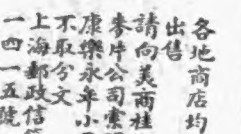 各地商店均
出售
請向美商桂
麥片公司索
康樂永年小
不取分文
上海郵政信
一四一五號